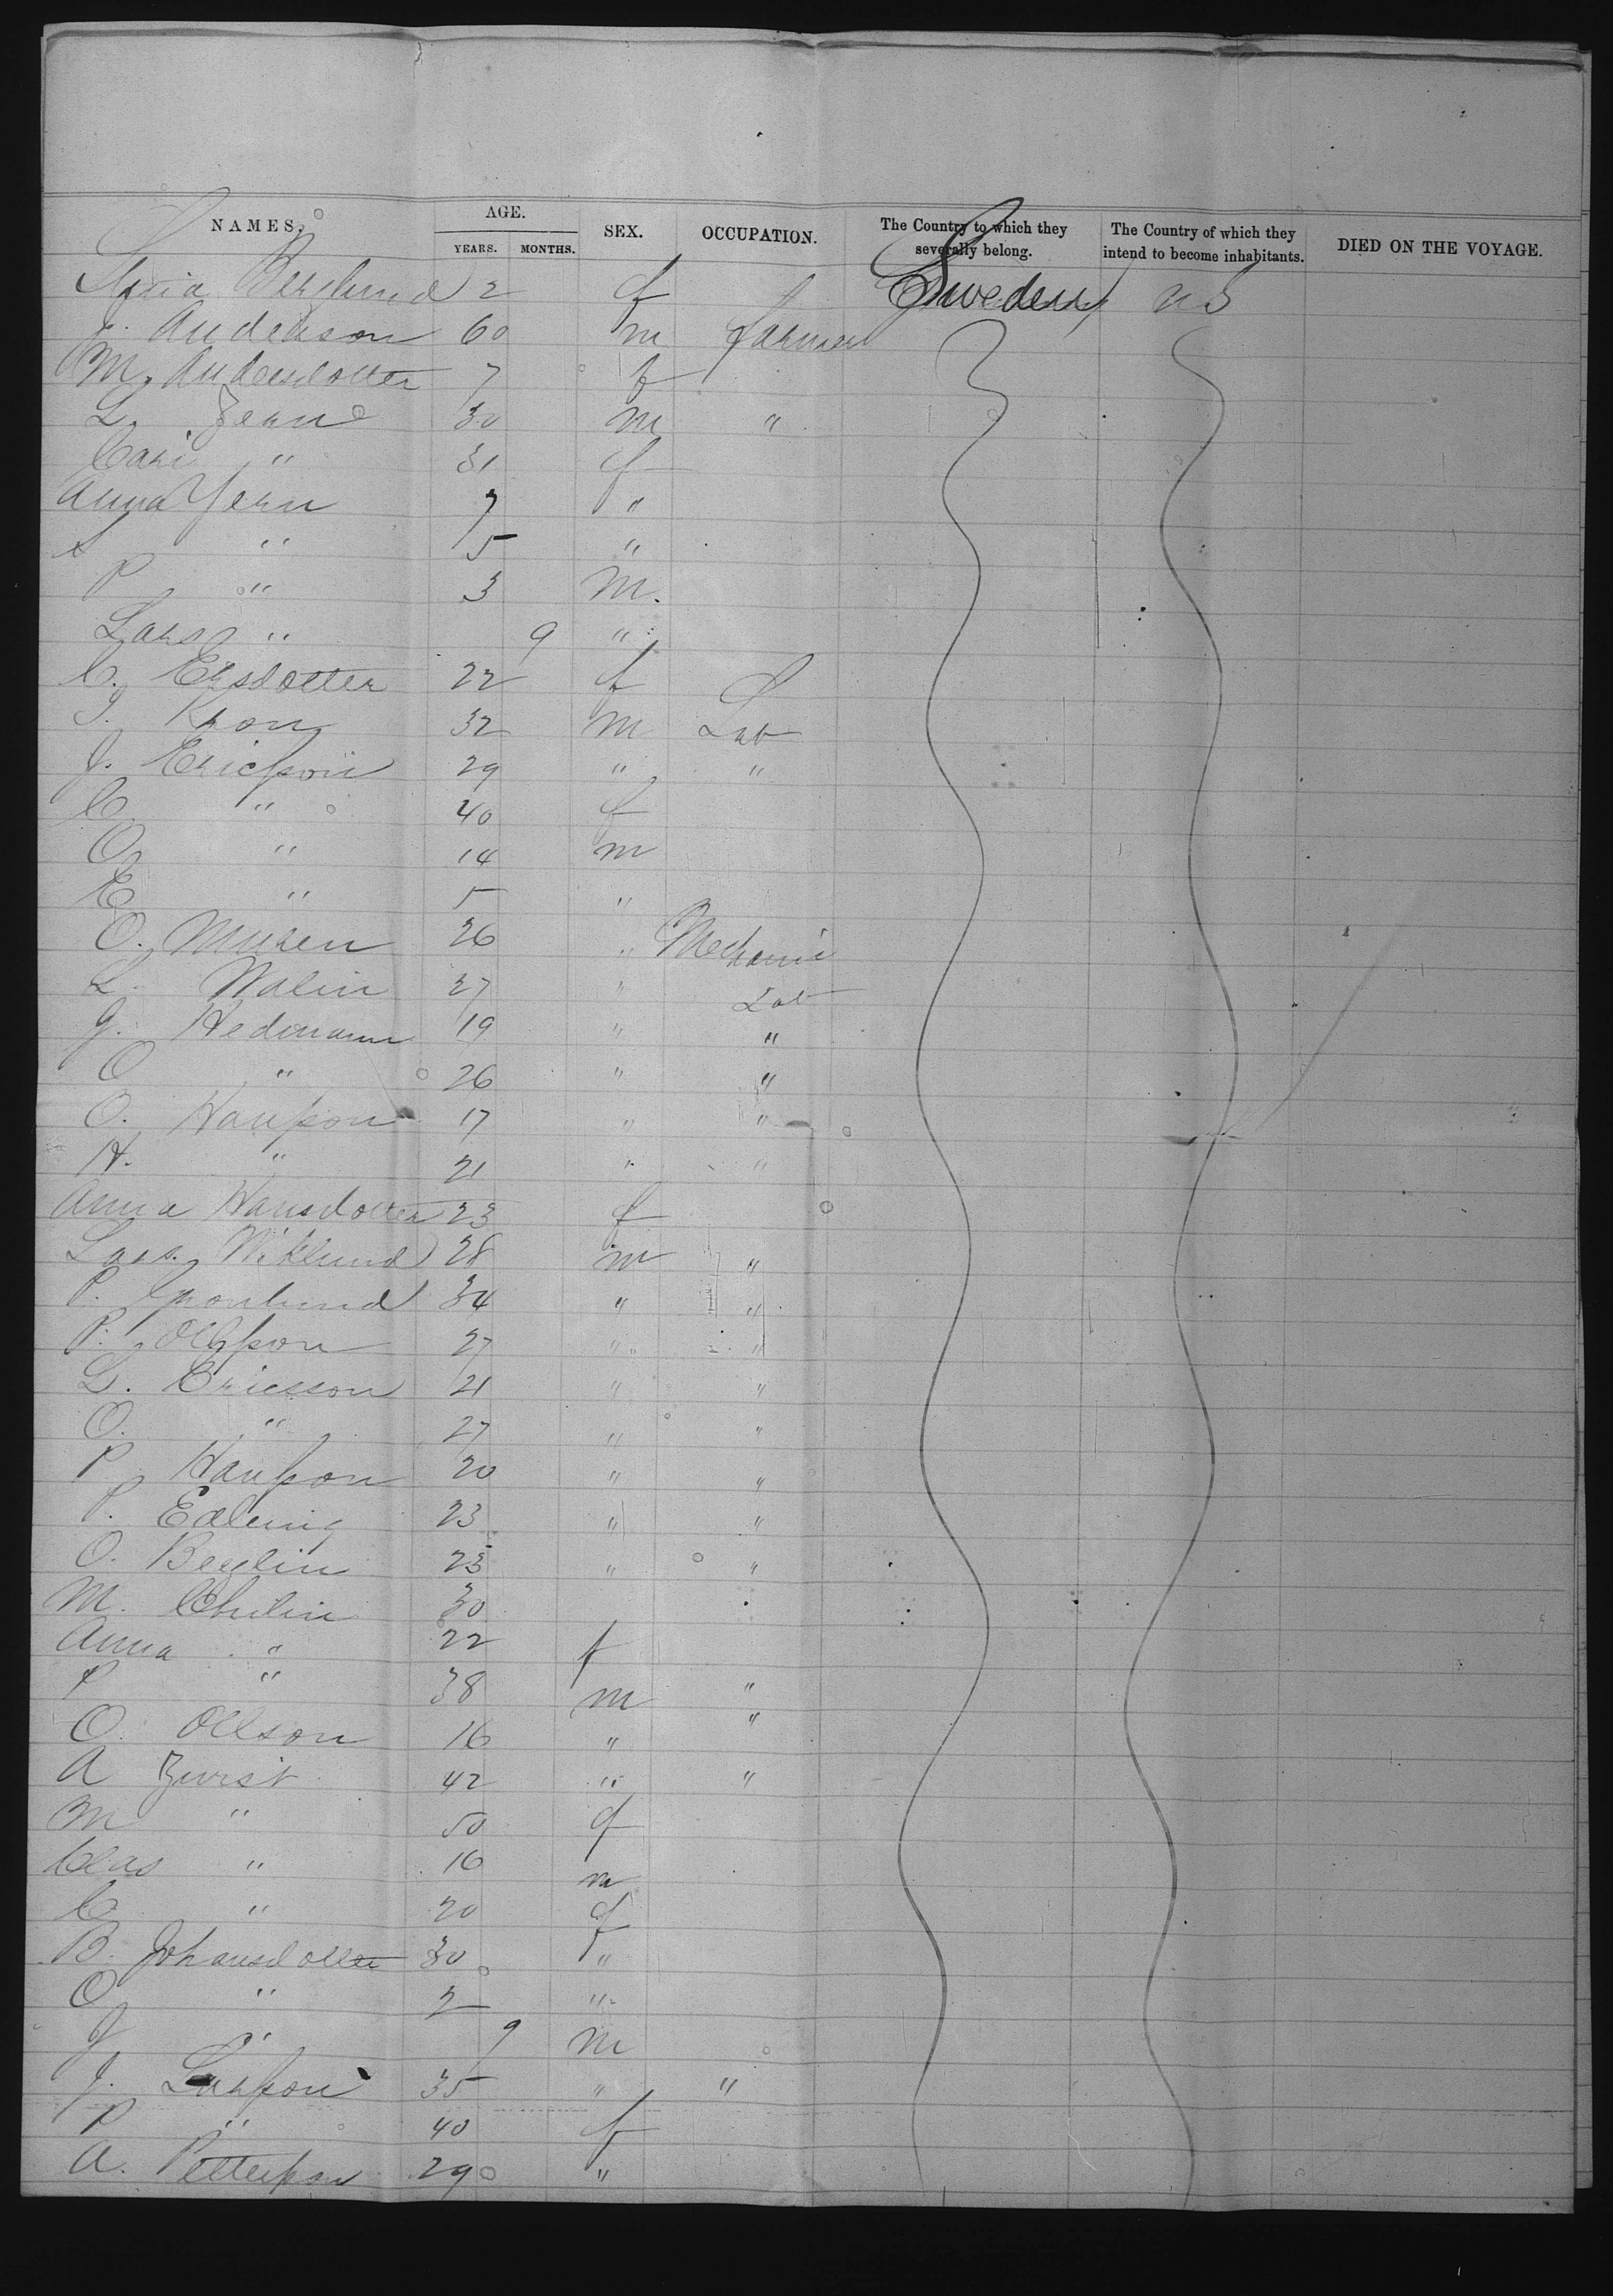 NAMES. AGE. SEX. OCCUPATION. The Country to which they severally belong. The Country of which they intend to become inhabitants. DIED ON THE VOYAGE.
YEARS. MONTHS.
Berglund 2 f Sweden US
J. Anderson 60 m farmer
M. Andersdotter 7 f
L. Jern 30 m "
Cari " 31 f
Anna Jern 7 "
S " 5 "
P " 3 m.
Lars " 9 "
C. Ersdotter 22 f
J. Kron 32 m Lab
J. Ericsson 29 " "
C. " 40 f
O " 14 m
E " 5 "
O. Muren 26 " Mechanic
L. Malin 27 " Lab
J. Hedmann 19 " "
O " 26 " "
O. Hansson 17 " "
H. " 21 " "
Anna Hansdotter 23 f
Lars. Wiklund 28 m "
P. Gronlund 34 " "
P. Olsson 27 " "
L. Ericsson 21 " "
O. " 27 " "
P. Hansson 20 " "
P. Edling 23 " "
O. Berglin 23 " "
M. 30
Anna " 22 f
P " 38 m "
O. Ollson 16 " "
A 42 " "
M " 50 f
Clas " 16 m
C " 20 f
B. Johansdotter 30 "
O " 2 "
J " 9 m
J. Larsson 35 " "
P " 40 f
A. Pettersson 29 "